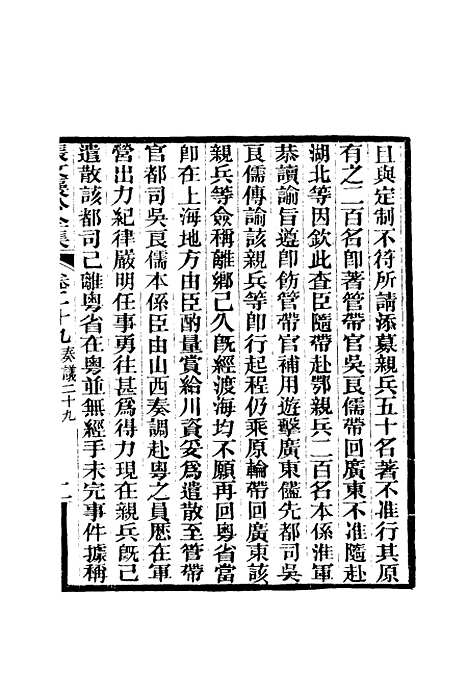 且與定制不符所請添募親兵五十名著不准行其原
有之二百名卽著管帶官吳良儒帶回廣東不准隨赴
湖北等因欽此查臣隨帶赴鄂親兵二百名本係淮軍
恭讀諭旨遵卽飭管帶官補用遊擊廣東儘先都司吳
良儒傳諭該親兵等卽行起程仍乘原輪帶回廣東該
親兵等僉稱離鄉已久旣經渡海均不願再回粵省當
卽在上海地方由臣酌量賞給川資妥爲遣散至管帶
官都司吳良儒本係臣由山西奏調赴粵之員歷在軍
營出力紀律嚴明任事勇往甚爲得力現在親兵旣已
遣散該都司已離粵省在粵並無經手未完事件據稱
張文襄公全集 卷二十九 奏議二十九